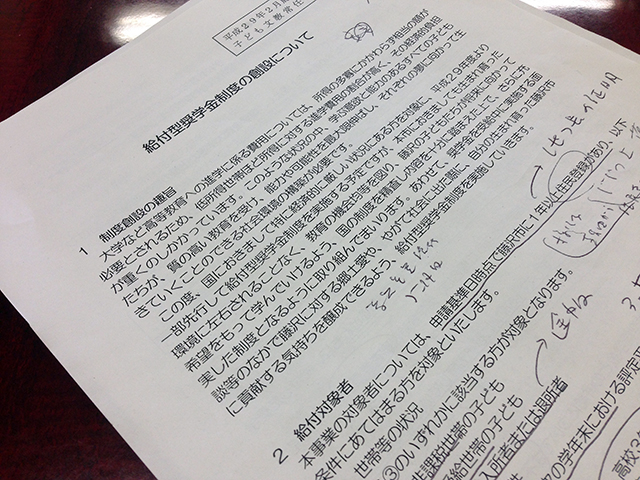 平成29年2月
子ども文教常任
給付型奨学金制度の創設について
1 制度創設の趣旨
大学など高等教育への進学に係る費用については、所得の多寡にかかわらず相当の額が
必要とされるため、低所得世帯ほど所得に対する進学費用の割合が高く、その経済的負担
が重くのしかかっています。このような状況の中、学ぶ意欲と能力のあるすべての子ども
たちが、質の高い教育を受け、能力や可能性を最大限伸ばし、それぞれの夢に向かって生
きていくことのできる社会環境の構築が必要です。
この度、国におきまして特に経済的に厳しい状況にある方を対象に、平成29年度より
一部先行して給付型奨学金制度を実施する予定ですが、本市におきましてもは生まれ育った
環境に左右されることなく、教育の機会均等を図り、藤沢の子どもたちが将来に向かって
希望をもって学んでいけるよう、国の制度を精査し内容を十分に踏まえた上で、さらに充
実した制度となるように取り組んでまいります。あわせて、奨学金を受給中に実施する面
談等のなかで藤沢に対する郷土愛や、やがて社会に出た際に、自分の生まれ育った藤沢市
に貢献する気持ちを醸成できるよう、給付型奨学金制度を実施していきます。
2 給付対象者
本事業の対象者については、申請基準日時点で藤沢市に1年以上住民登録があり、以下
条件にあてはまる方を対象といたします。
世帯等の状況
③のいずれかに該当する方が対象となります。
非課税世帯の子ども
給世帯の子ども
入所者または退所者
の学年末における評定
高校3